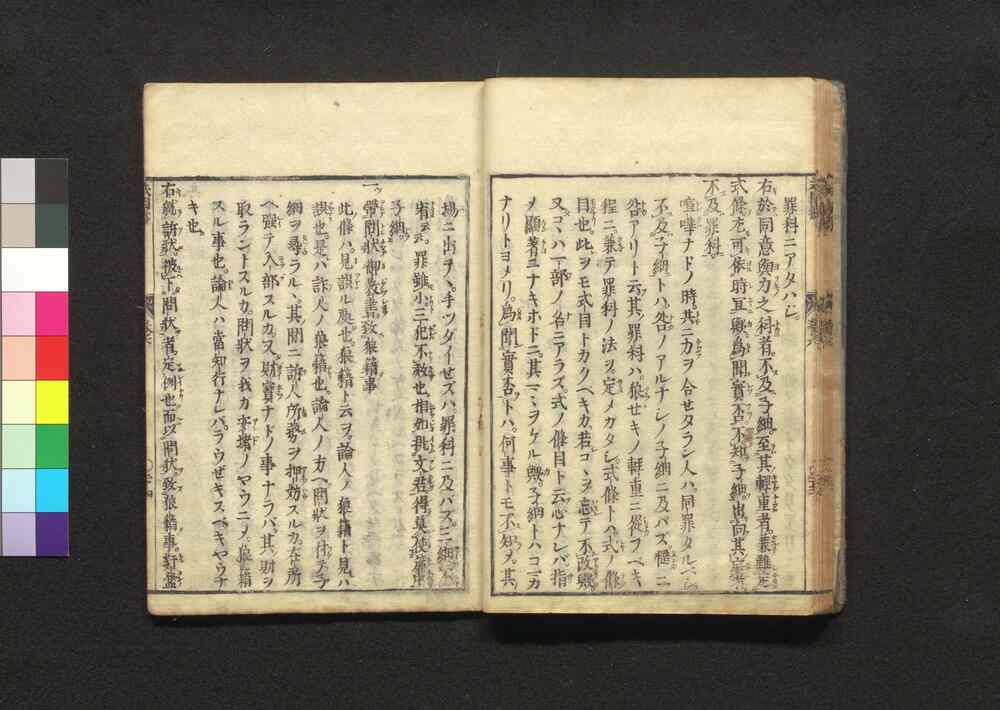 罪科ニアタハズ
右於同意與力之科者不及子細至其輕重者兼難定
式條尤可依時宜歟爲聞實否不知子細出向其庭者
不及罪科
喧嘩ナドノ時共ニ力ヲ合セタラン人ハ同罪タルベシ
不及子細トハ咎ノアルナシノ子細ニ及バズ穩ニ
咎アリト云其罪科ハ狼セキノ輕重ニ從フベキ
程ニ兼テ罪科ノ法ヲ定メガタシ式條トハ式ノ條
目也此ヲモ式目トカクベキカ若コヽヲ忘テ不改歟
又コヽハ一部ノ台ニアラズ式ノ條目ト云心ナレバ指
ノ顯著ニナキホドニ其マヽヲケル歟子細トハコニカ
ナリトヨメリ爲聞實否トハ何事トモ不知メ其
場ニ出テヽ手ツダイセズハ罪科ニ及バズ
子細
一帶問狀御敎書致狼藉事
此條ハ見誤ル處也狼藉ト云ヲ論人ノ狼藉ト見ハ
誤也是ハ訴人ノ狼藉也論人ノ方ヘ問狀ヲ付テ子
細ヲ尋ラルヽ其間ニ訴人所務ヲ押妨スルカ在所
ヘ强テ入部スルカ又財寶ナドノ事ナラバ其財ヲ
取ラントスルカ問狀ヲ我カ安堵ノヤウニメ狼藉
スル事也論人ハ當知行ナレバラウゼキスベキヤウナ
キ也
右就訴狀被下問狀者定例也而以問狀致狼藉事姧濫